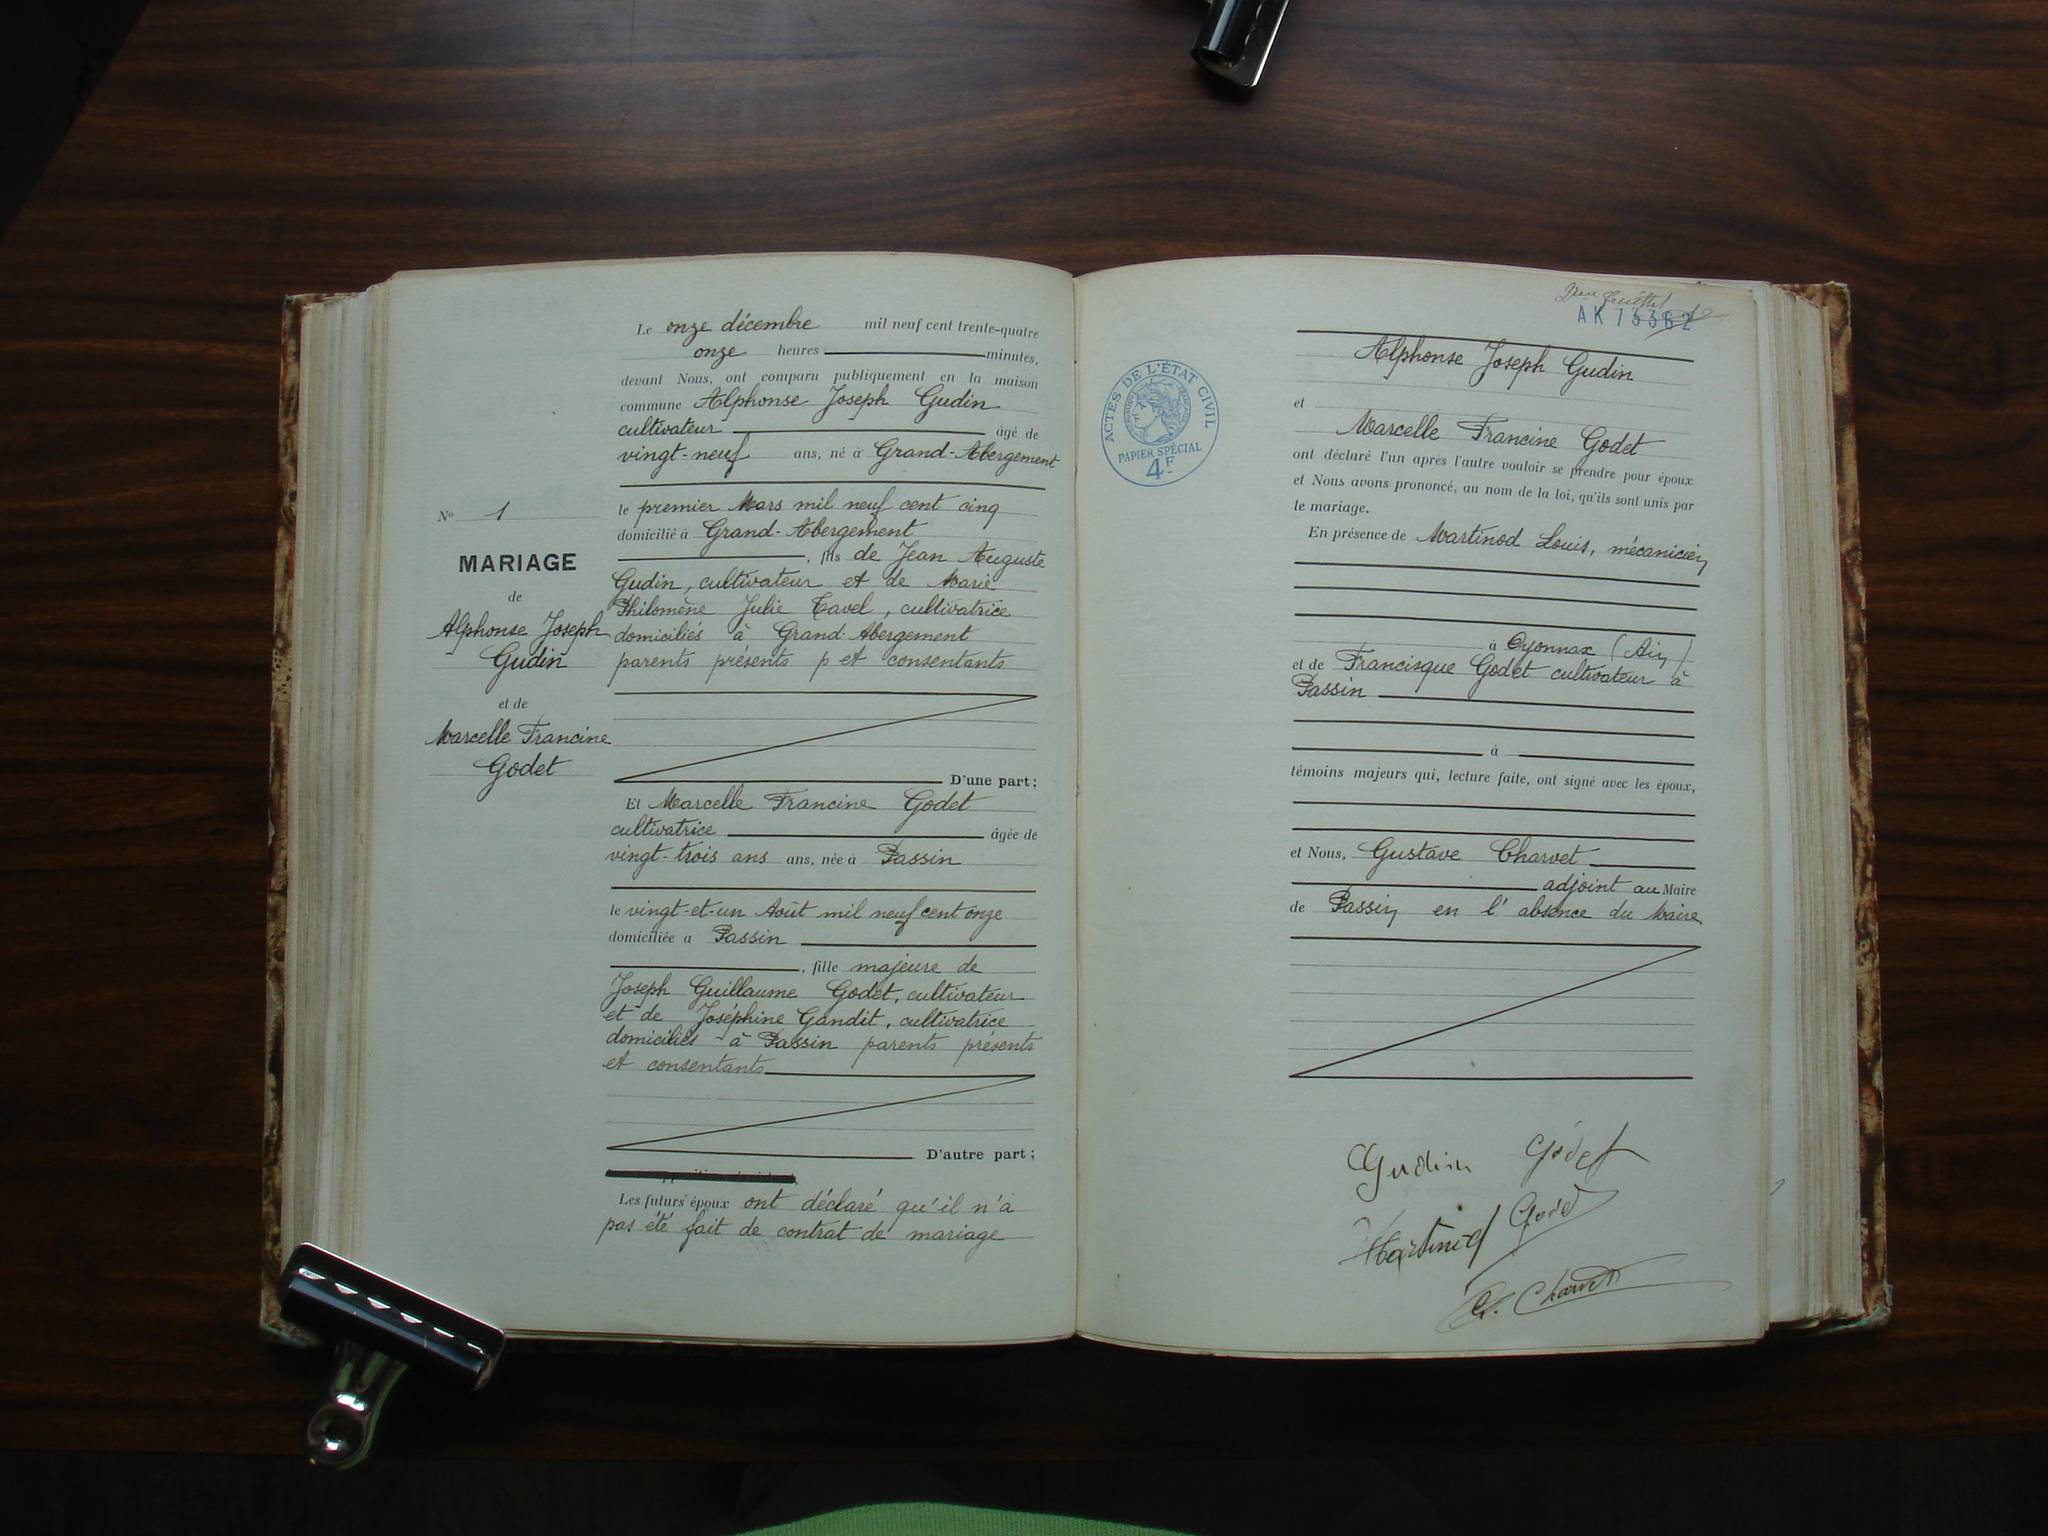 Le onze décembre mil neuf cent trente-quatre
onze heures minutes,
devant Nous, ont comparu publiquement en la maison
commune Alphonse Joseph Gudin
cultivateur âgé de
vingt-neuf ans, né à Grand-Abergement
le premier Mars mil neuf cent cinq
domicilié à Grand-Abergement
, fils de Jean Auguste
Gudin, cultivateur et de Marie
Philomène Julie Tavel, cultivatrice
domiciliés à Grand-Abergement
parents présents p et consentants
D'une part;
Et Marcelle Francine Godet
cultivatrice âgée de
vingt-trois ans ans, née à Passin
le vingt-et-un Août mil neuf cent onze
domiciliée a Passin
, fille majeure de
Joseph Guillaume Godet, cultivateur
et de Joséphine Gandit, cultivatrice
domiciliés à Passin parents présents
et consentants
D'autre part;
Les futurs époux ont déclaré qu'il n'a
pas été fait de contrat de mariage
No 1
MARIAGE
de
Alphonse Joseph
Gudin
et de
Marcelle Francine
Godet
AK 73362
ACTES DE L'ÉTAT CIVIL
PAPIER SPÉCIAL
4F
Alphonse Joseph Gudin
et
Marcelle Francine Godet
ont déclaré l'un après l'autre vouloir se prendre pour époux
et Nous avons prononcé, au nom de la loi, qu'ils sont unis par
le mariage.
En présence de Martinod Louis, mécanicien
à Oyonnax (Ain)
et de Francisque Godet cultivateur à
Passin
à
témoins majeurs qui, lecture faite, ont signé avec les époux,
et Nous, Gustave Charvet
adjoint au Maire
de Passin en l'absence du Maire
Gudin Godet
Martinod Godet
G. Charvet